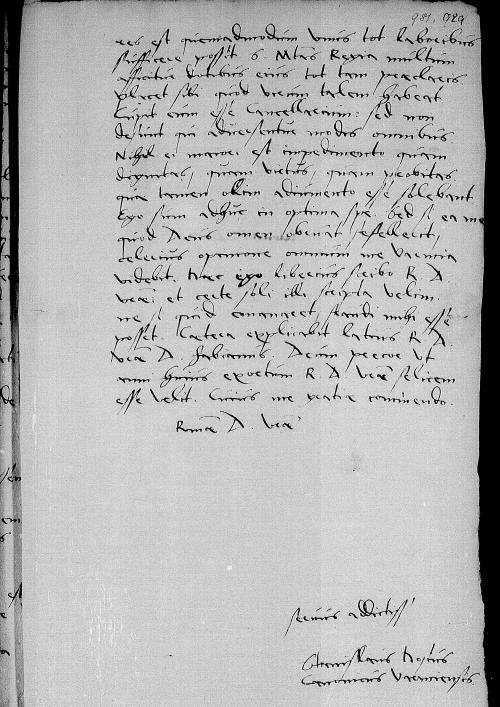 981. 729
res est quemadmodum unus tot laboribus
sufficere possit S. Mtas Regia multum
afficitur dotibus eius tot tam praeclaris
placet sibi quod virum talem habeat
cupit eum esse Cancellarium: sed non
desunt qui adversentur modis omnibus
Nihil ei maiori est impedimento quam
dignitas, quam virtus, quam probitas
quae tamen olim adiumento esse solebant
Ego sum adhuc in optima spe. Sed si ea me
quod Deus omen obruat fefellerit,
celerius opinione omnium me Varmia
videbit. Haec ego liberius scribo R. D.
vrae: et certe soli illi scripta velim
ne si quid emanaret, fraudi mihi esse
posset. Caetera explicabit latius R. D.
vrae D. Fabianus. Deum precor ut
anni huius exortum R. D. vrae felicem
esse velit. Cuius me gratiae commendo.
Rmae D. vrae
servus addictiss
Stanislaus Hosius
Canonicus Varmiensis